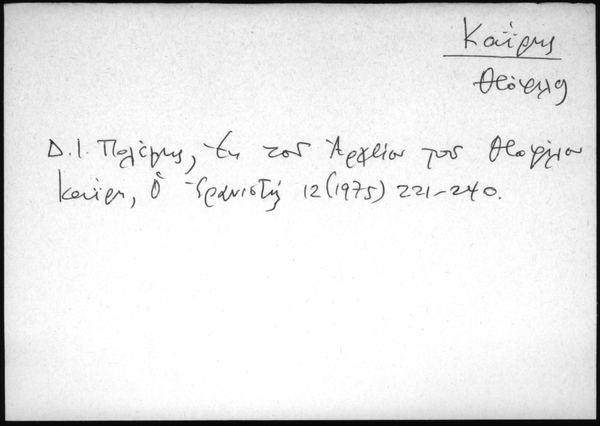 Καΐρης
Θεόφιλος
Δ. Ι. Πολέμης, Ἐκ τοῦ Ἀρχείου τοῦ Θεοφίλου
Καΐρη, Ὁ Ἐρανιστής 12 (1975) 221-240.